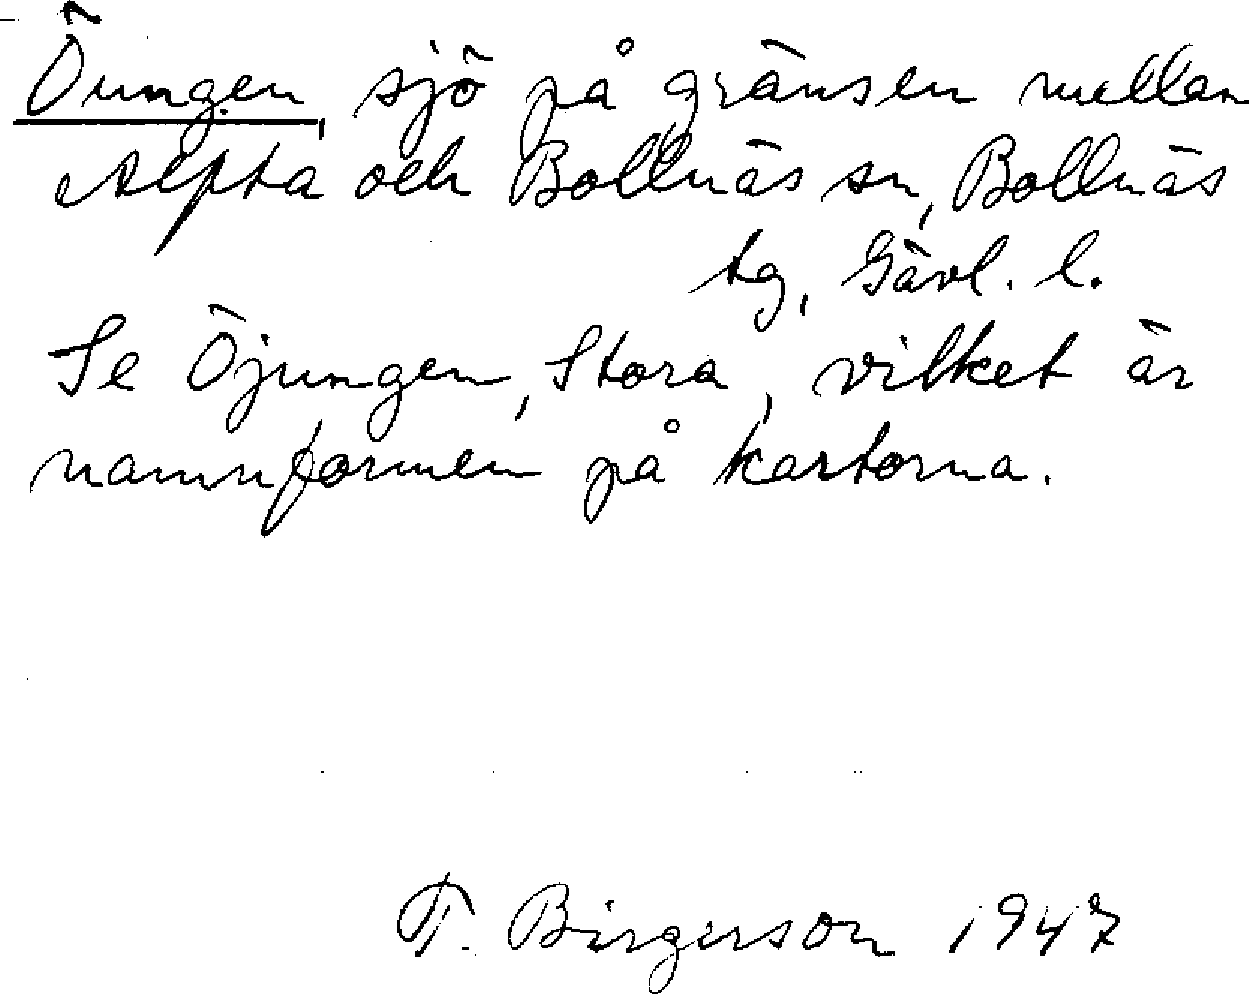 Öungen, sjö på gränsen mellan
Alfta och Bollnäs sn, Bollnäs
tg, Gävl. l.
Se Öjungen, Stora, vilket är
namnformen på kartorna.
T. Birgerson 1947